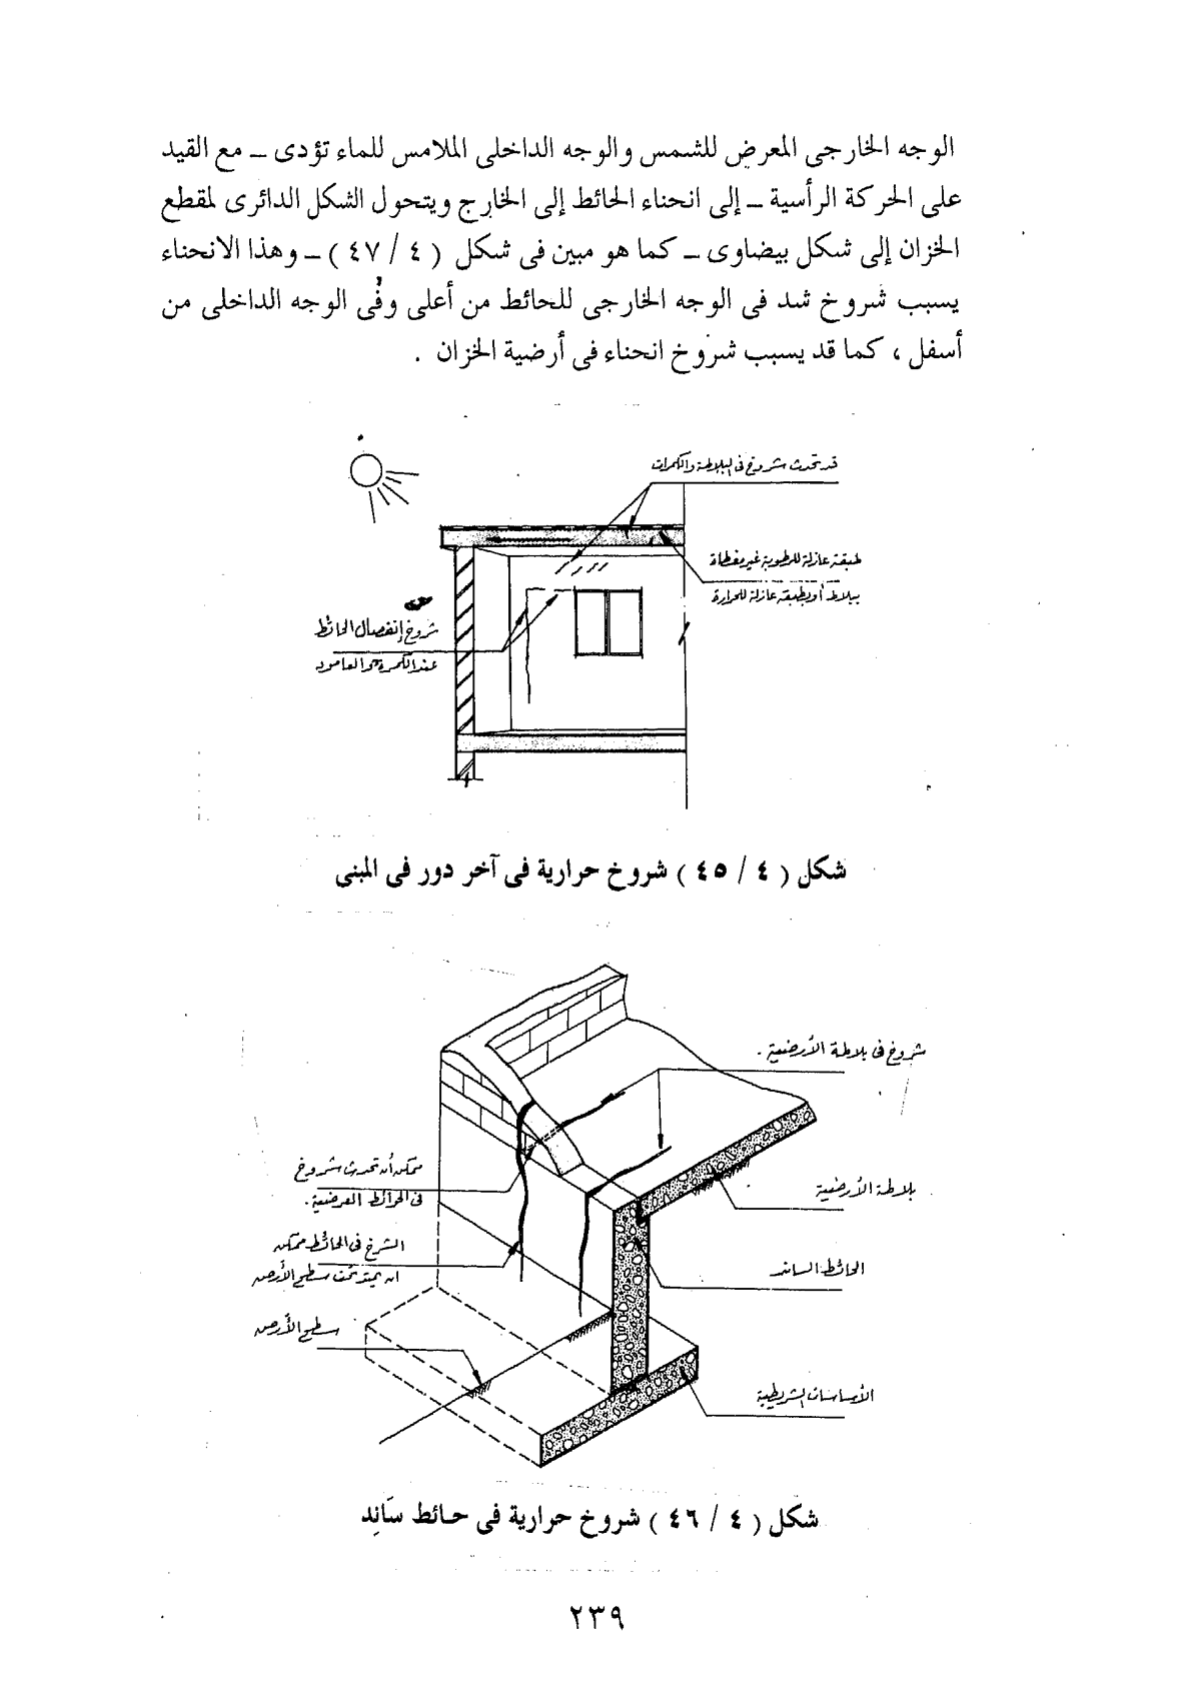 الوجه الخارجى المعرض للشمس والوجه الداخلى الملامس للماء تؤدى ــ مع القيد
على الحركة الرأسية ــ إلى انحناء الحائط إلى الخارج ويتحول الشكل الدائرى لمقطع
الخزان إلى شكل بيضاوى ــ كما هو مبين فى شكل ( ٤ / ٤٧ ) ــ وهذا الانحناء
يسبب شروخ شد فى الوجه الخارجى للحائط من أعلى وفى الوجه الداخلى من
أسفل ، كما قد يسبب شروخ انحناء فى أرضية الخزان .
قد تحدث شروخ فى البلاطة والكمرات
طبقة عازلة للرطوبة غير مغطاة
ببلاط أو بطبقة عازلة للحرارة
شروخ إنفصال الحائط
عند الكمرة و العامود
شكل ( ٤ / ٤٥ ) شروخ حرارية فى آخر دور فى المبنى
شروخ فى بلاطة الأرضية .
ممكن أن تحدث شروخ
فى الحوائط العرضية .
بلاطة الأرضية
الشرخ فى الحائط ممكن
ان يمتد تحت سطح الأرض
الحائط الساند
سطح الأرض
الأساسات الشريطية
شكل ( ٤ / ٤٦ ) شروخ حرارية فى حائط ساند
٢٣٩